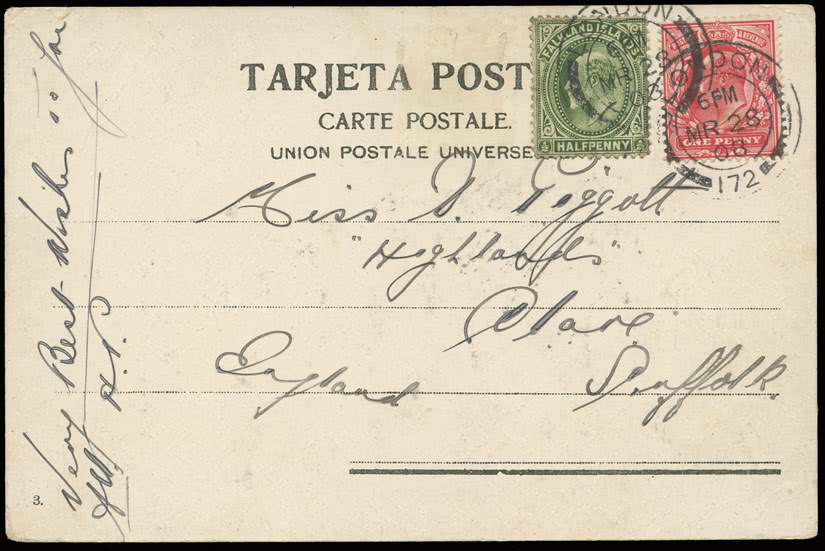 TARJETA POST
CARTE POSTALE.
UNION POSTALE UNIVERSE
FALKLAND ISLANDS
HALFPENNY
& REVENUE
ONE PENNY
LONDON
6 PM
MR 28
08
172
Miss D. Piggott
"Highlands"
Clare
England Suffolk
Very Best Wishes
3.